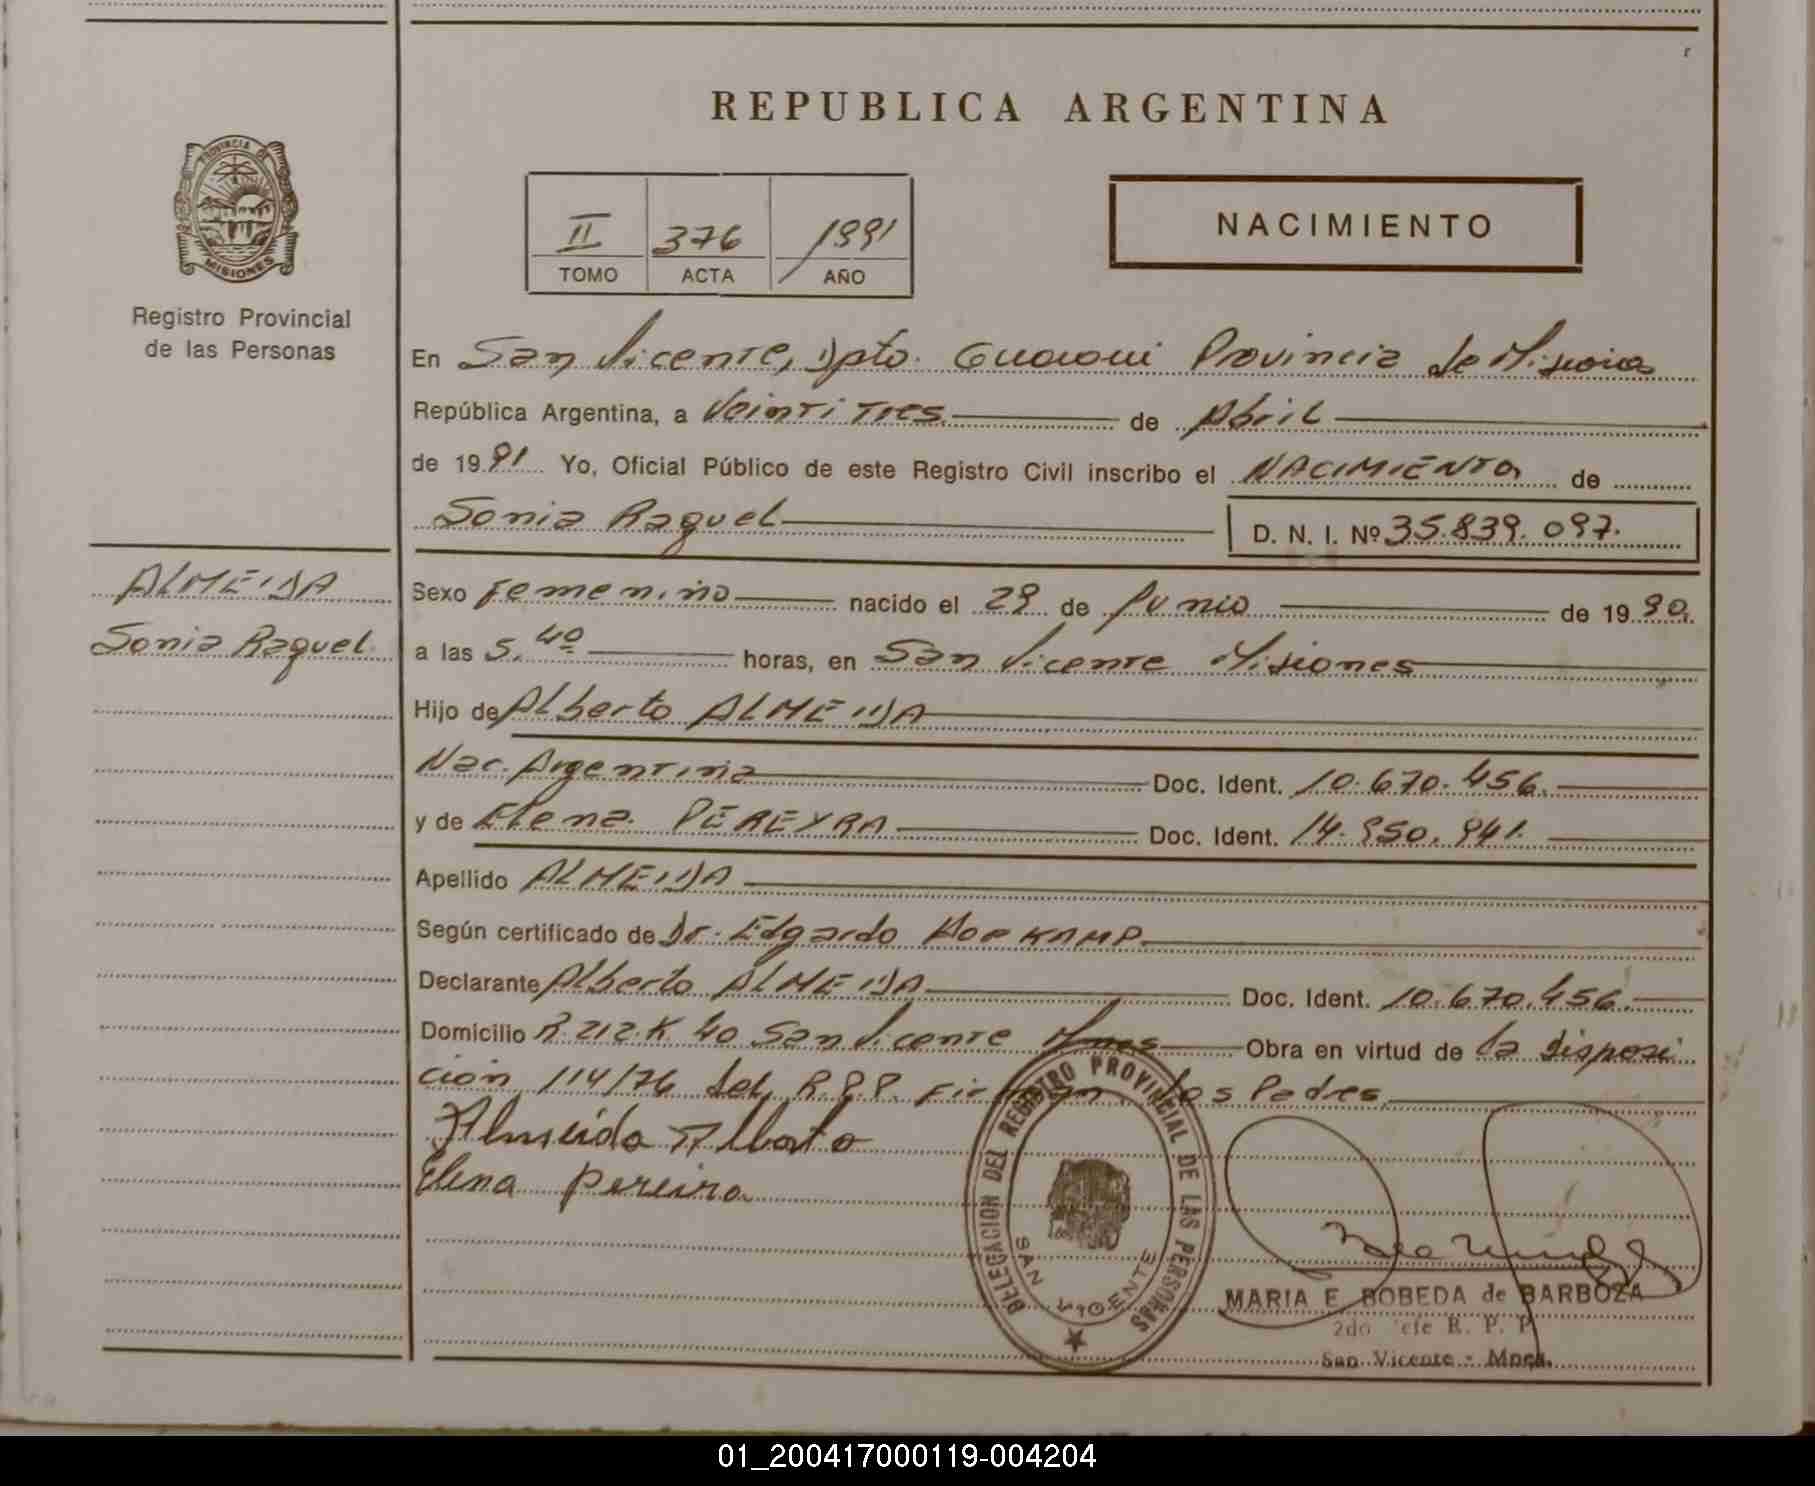 REPUBLICA ARGENTINA
PROVINCIA DE
MISIONES
Registro Provincial
de las Personas
II 376 1991
TOMO ACTA AÑO
NACIMIENTO
En San Vicente, Dpto. Guarani Provincia de Misiones
República Argentina, a Veinti Tres de Abril
de 1991 Yo, Oficial Público de este Registro Civil inscribo el NACIMIENTO de
Sonia Raquel
D. N. I. Nº 35.839.097.
ALMEIDA
Sonia Raquel
Sexo Femenino nacido el 29 de Junio de 1990.
a las 5.40 horas, en San Vicente Misiones
Hijo de Alberto ALMEIDA
Nac. Argentina Doc. Ident. 10.670.456.
y de Elena PEREYRA Doc. Ident. 14.950.941.
Apellido ALMEIDA
Según certificado de Dr. Edgardo
Declarante Alberto ALMEIDA Doc. Ident. 10.670.456.
Domicilio R.212.K.40 San Vicente Mnes Obra en virtud de la disposi
ción 114/76 del R.P.P. Firman los Padres
Almeida Alberto
Elena Pereira
DELEGACION DEL REGISTRO PROVINCIAL DE LAS PERSONAS
SAN VICENTE
MARIA E. BOBEDA de BARBOZA
2do Jefe R. P. P.
San Vicente - Mnes.
01_200417000119-004204